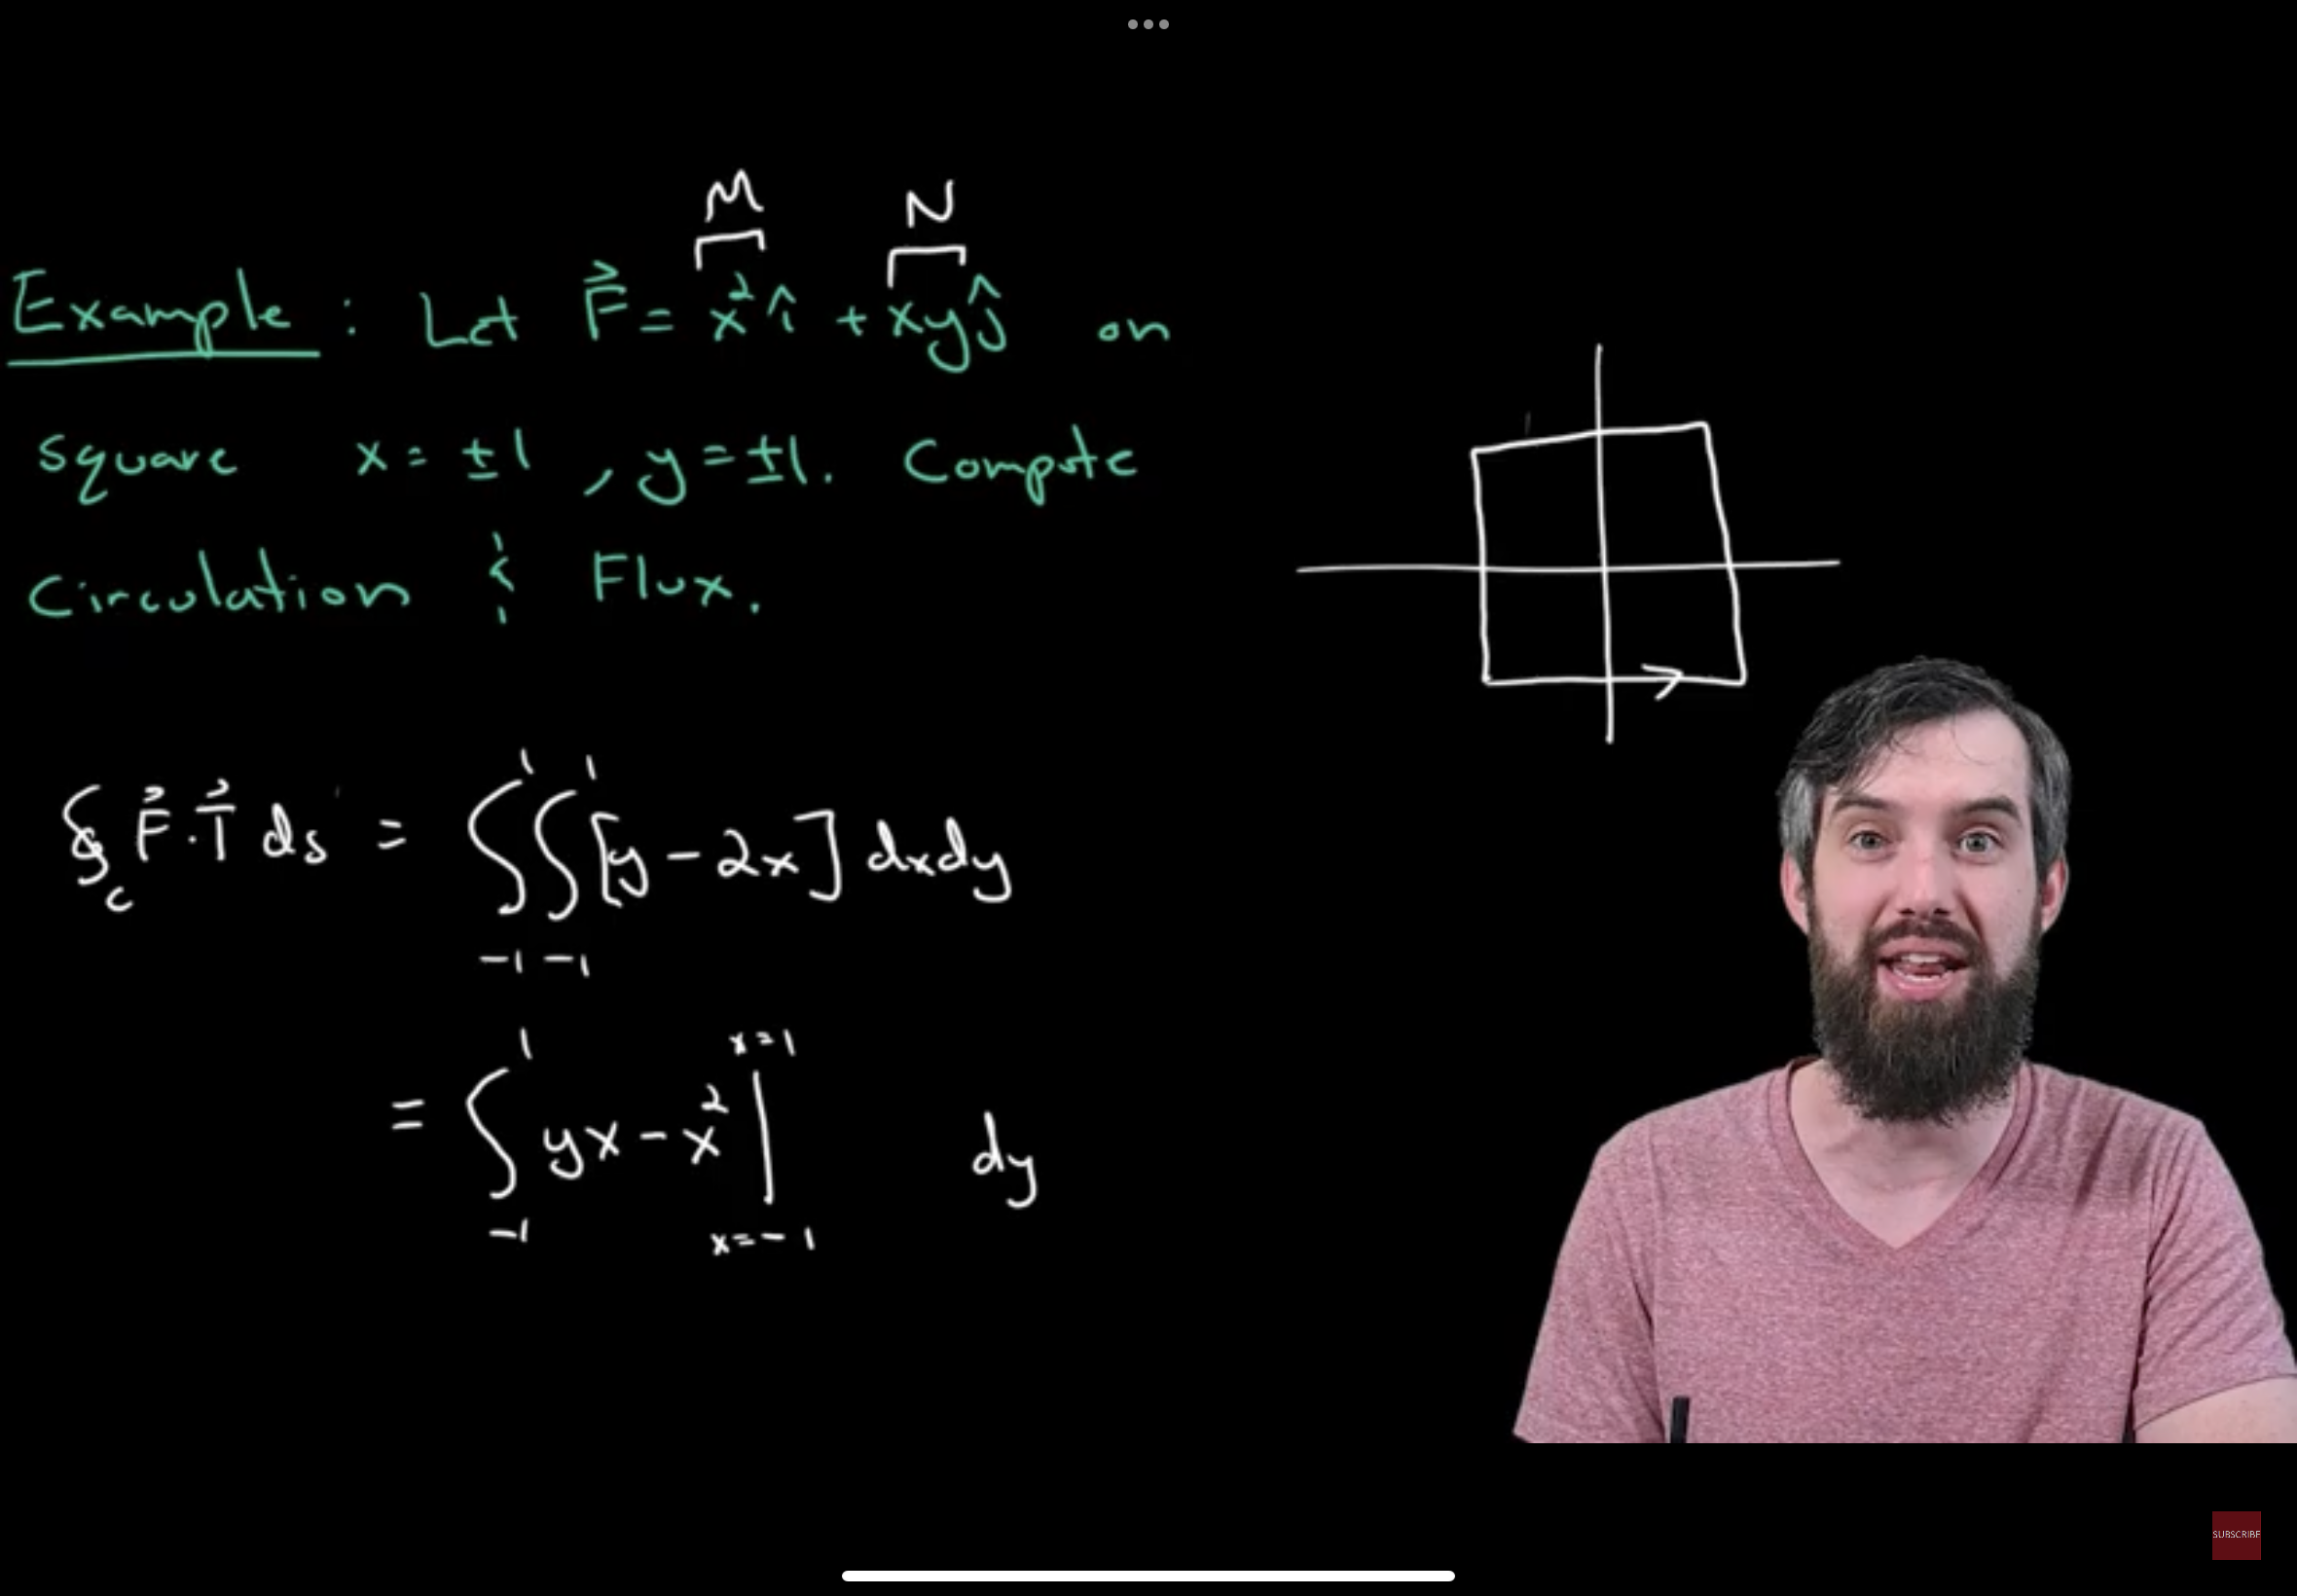 M N
Example : Let F⃗ = x² î + xy ĵ on
square x = ±1 , y = ±1. Compute
Circulation & Flux.
∮_C F⃗ · T⃗ ds = ∫_{-1}^{1} ∫_{-1}^{1} [y - 2x] dxdy
= ∫_{-1}^{1} yx - x² |_{x=-1}^{x=1} dy
SUBSCRIBE